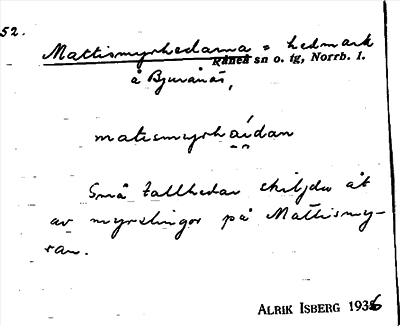 52.
Mattismyrhedarna = hedmark
Råneå sn o. tg, Norrb. l.
å Bjurånäs,
matismyrhaídan
Små tallhedar skiljda åt
av myrslingor på Mattismy-
ran.
ALRIK ISBERG 1936